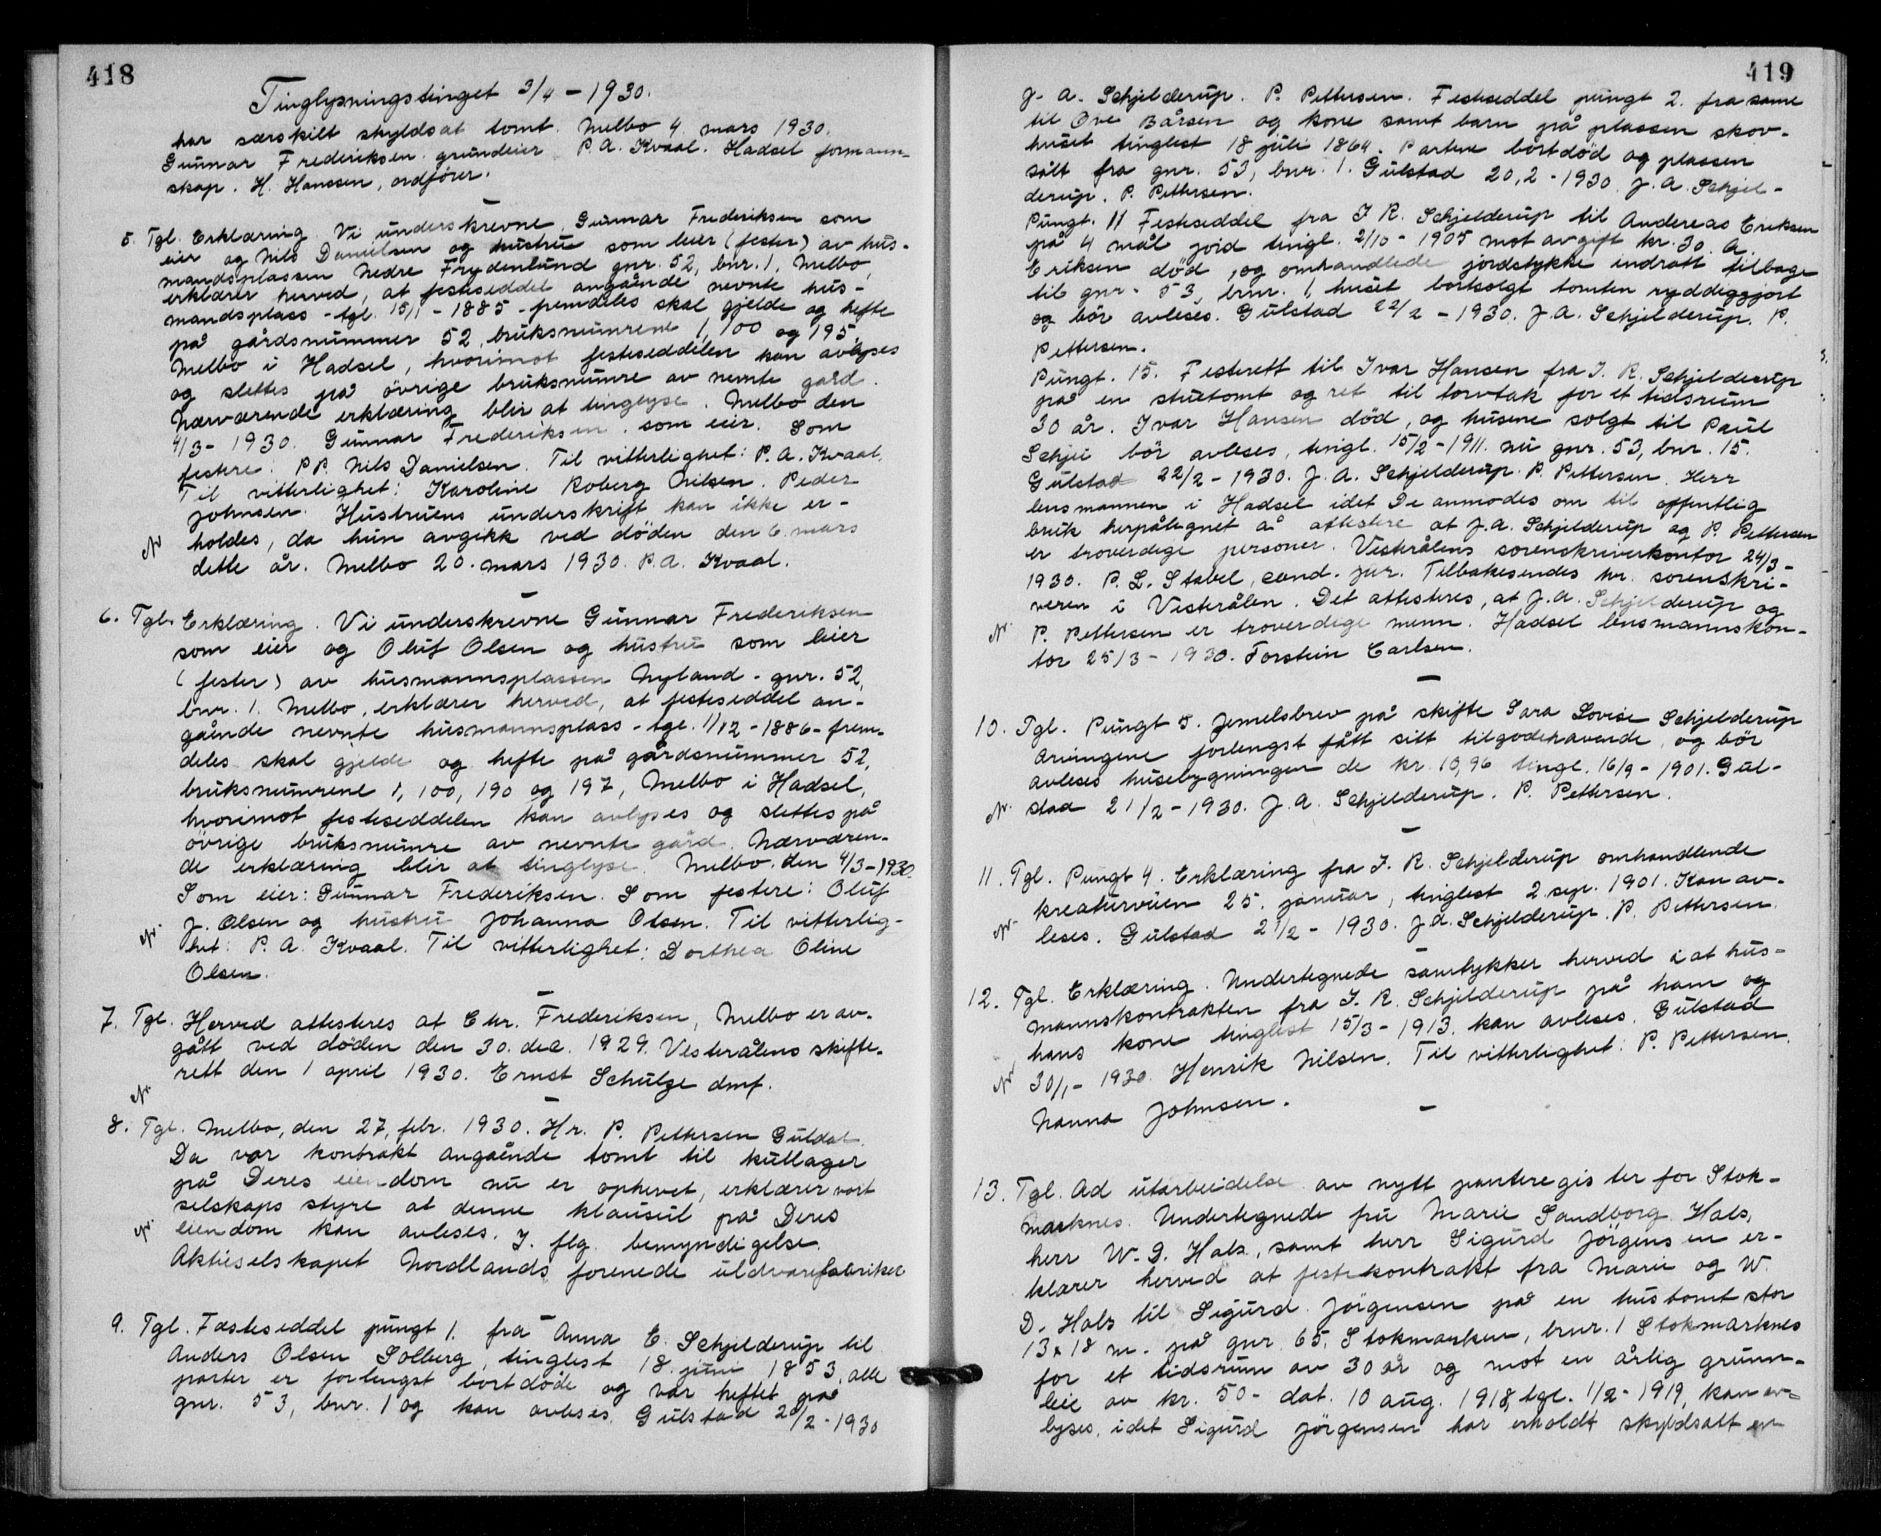 418
Tinglysningstinget 3/4 - 1930.
har særskilt skyldsat tomt. Melbo 4. mars 1930.
Gunnar Frederiksen grundeier P. A. Kvaal. Hadsel formann-
skap. H. Hanssen, ordfører.
5. Tgl. Erklæring. Vi underskrevne Gunnar Frederiksen som
eier og Nils Danielsen og hustru som leier (fester) av hus-
mandsplassen Nedre Frydenlund gnr. 52, bnr. 1. Melbo,
erklærer herved, at festeseddel angående nevnte hus-
mandsplass - tgl. 15/11 - 1885 - fremdeles skal gjelde og hefte
på gårdsnummer 52, bruksnumrene 1, 100 og 195,
Melbo i Hadsel, hvorimot festeseddelen kan avlyses
og slettes på øvrige bruksnumre av nevnte gard.
Nærværende erklæring blir at tinglyse. Melbo den
4/3 - 1930. Gunnar Frederiksen. som eier. Som
festere: p.p. Nils Danielsen. Til vitterlighet: P. A. Kvaal.
Til vitterlighet: Karoline Roberg Nilsen. Peder
Johnsen. Hustruens underskrift kan ikke er-
holdes, da hun avgikk ved døden den 6. mars
dette år. Melbo 20. mars 1930. P. A. Kvaal.
6. Tgl. Erklæring. Vi underskrevne Gunnar Frederiksen
som eier og Oluf Olsen og hustru som leier
(fester) av husmannsplassen Nyland - gnr. 52,
bnr. 1. Melbo, erklærer herved, at festeseddel an-
gående nevnte husmannsplass - tgl. 1/12 - 1886 - frem-
deles skal gjelde og hefte på gårdsnummer 52,
bruksnumrene 1, 100, 190 og 197, Melbo i Hadsel,
hvorimot festeseddelen kan avlyses og slettes på
øvrige bruksnumre av nevnte gård. Nærværen-
de erklæring blir at tinglyse. Melbo. den 4/3 - 1930.
Som eier: Gunnar Frederiksen. Som festere: Oluf
J. Olsen og hustru Johanna Olsen. Til vitterlig-
het: P. A. Kvaal. Til vitterlighet: Dorthea Oline
Olsen.
7. Tgl. Herved attesteres at Chr. Frederiksen, Melbo er av-
gått ved døden den 30. dec. 1929. Vesterålens skifte-
rett den 1 april 1930. Ernst Schulze dmf.
8. Tgl. Melbo, den 27. febr. 1930. Hr. P. Pettersen Guldal.
Da vor kontrakt angående tomt til kullager
på Deres eiendom nu er ophevet, erklærer vort
selskaps styre at denne klausul på Deres
eiendom kan avleses. I. flg. bemyndigelse.
Aktieselskapet Nordlands forenede uldvarefabriker
9. Tgl. Festeseddel pungt 1. fra Anna E. Schjelderup til
Anders Olsen Solberg, tinglest 18. juni 1853, alle
parter er forlengst bortdøde og var heftet på
gnr. 53, bnr. 1 og kan avleses. Gulstad 20/2 - 1930
419
J. A. Schjelderup. P. Pettersen. Festeseddel pungt 2. fra same
til Ove Bårsen og kone samt barn på plassen skov-
huset tinglest 18 juli 1864. Partene bortdød og plassen
salt fra gnr. 53, bnr. 1. Gulstad 20,2 - 1930 J. A. Schjel-
derup. P. Pettersen.
Pungt. 11 Festeseddel fra J. R. Schjelderup til Andereas Eriksen
på 4 mål jord tingl. 2/10 - 1905 mot avgift kr. 30. A.
Eriksen død, og omhandlede jordstykke indratt tilbage
til gnr. 53, brnr. 1, huset bortsolgt tomten ryddiggjort
og bør avleses. Gulstad 22/2 - 1930. J. A. Schjelderup. P.
Pettersen.
Pungt. 15. Festerett til Ivar Hansen fra J. R. Schjelderup
på en stuetomt og ret til torvtak for et tidsrum
30 år. Ivar Hansen død, og husene solgt til Paul
Schjei bør avleses, tingl. 15/2 - 1911. nu gnr. 53, bnr. 15.
Gulstad 22/2 - 1930. J. A. Schjelderup. P. Pettersen. Herr
lensmannen i Hadsel idet De anmodes om til offentlig
bruk herpålegnet å attestere at J. A. Schjelderup og P. Pettersen
er troverdige personer. Vesterålens sorenskriverkontor 24/3 -
1930. P. L. Stabel, cand. jur. Tilbakesendes hr. sorenskri-
veren i Vesterålen. Det attesteres, at J. A. Schjelderup og
P. Pettersen er troverdige menn. Hadsel lensmannskon-
tor 25/3 - 1930. Torstein Carlsen.
10. Tgl. Pungt 5. Jemelsbrev på skifte Sara Lovise Schjelderup
Arvingene forlengst fått sitt tilgodehavende, og bør
avleses husebygningen de kr. 10,96 tingl. 16/9 - 1901. Gul-
stad 21/2 - 1930. J. A. Schjelderup. P. Pettersen.
11. Tgl. Pungt 4. Erklæring fra J. R. Schjelderup omhandlende
kreaturveien 25. januar, tinglest 2 sep. 1901. Kan av-
leses. Gulstad 21/2 - 1930. J. A. Schjelderup. P. Pettersen.
12. Tgl. Erklæring. Undertegnede samtykker herved i at hus-
mannskontrakten fra J. R. Schjelderup på ham og
hans kone tinglest 15/3 - 1913. kan avleses. Gulstad
30/1 - 1930. Henrik Nilsen. Til vitterlighet: P. Pettersen.
Nanna Johnsen.
13. Tgl. Ad utarbeidelse av nytt panteregister for Stok-
marknes. Undertegnede fru Marie Sandborg Hals,
herr W. D. Hals, samt herr Sigurd Jørgensen er-
klærer herved at festekontrakt fra Marie og W.
D. Hals til Sigurd Jørgensen på en hustomt stor
13 x 18 m. på gnr. 65. Stokmarknes, brnr. 1 Stokmarknes
for et tidsrum av 30 år og mot en årlig grunn-
leie av kr. 50 - dat. 10 aug. 1918, tgl. 1/2 - 1919, kan av-
lyses, idet Sigurd Jørgensen har erholdt skyldsatt en